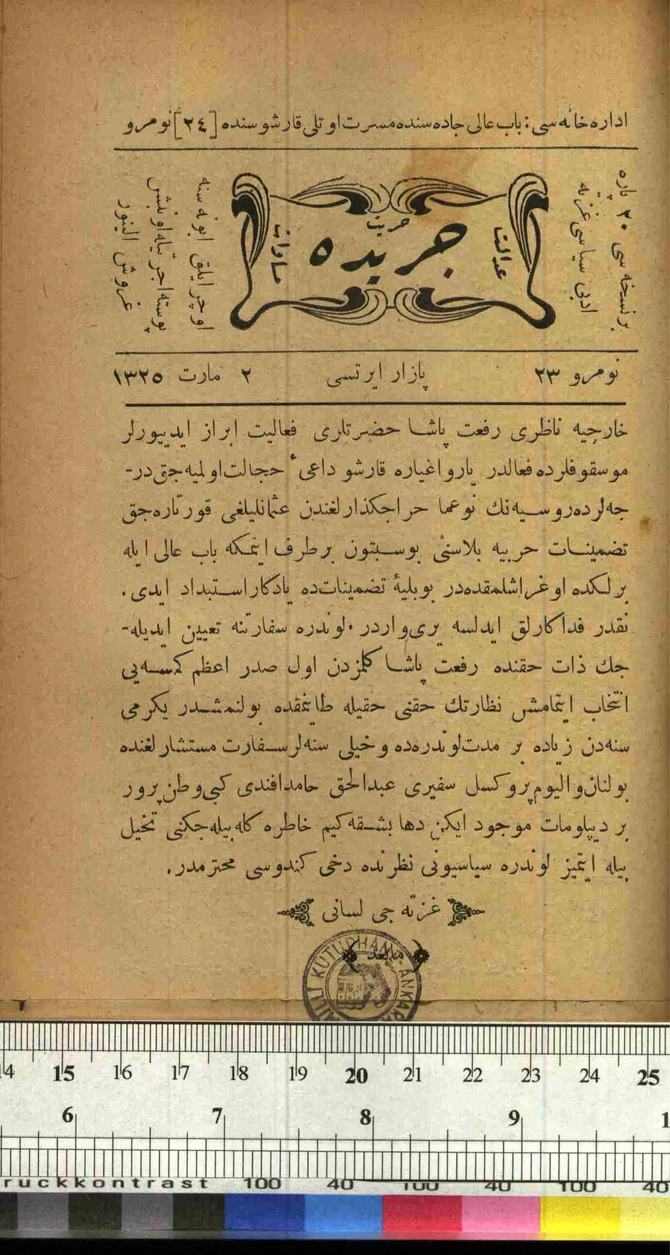 اداره خانه سی : باب عالی جاده سنده مسرت اوتلی قارشوسنده [٢٤] نومرو
برنسخه سی ٢٠ پاره
ادبی سیاسی غزته
عدالت
حریت
جریده
مساوات
اوچ ایلق ابونه سنه
پوسته اجرتیله اونبش
غروش النور
نومرو ٢٣ پازار ایرتسی ٢ مارت ١٣٢٥
خارجیه ناظری رفعت پاشا حضرتلری فعالیت ابراز ایدییورلر
موسقوفلرده فعالدر یارواغیاره قارشو داعیٔ حجالت اولمیه جق در-
جه لرده روسیه نك نوعما خراجکذارلغندن عثمانلیلغی قورتاره جق
تضمینات حربیه بلاسنی بوسبتون برطرف ایتمکه باب عالی ایله
برلکده اوغراشلمقده در بوبلیهٔ تضمینات ده یادکار استبداد ایدی .
نقدر فداکارلق ایدلسه یری واردر . لوندره سفارتنه تعیین ایدیله-
جك ذات حقنده رفعت پاشا کلمزدن اول صدر اعظم کمسه یی
انتخاب ایتمامش نظارتك حقنی حقیله طانمقده بولنمشدر یکرمی
سنه دن زیاده بر مدت لوندره ده و خیلی سنه لر سفارت مستشارلغنده
بولنان و الیوم بروکسل سفیری عبدالحق حامد افندی کبی وطن پرور
بر دیپلومات موجود ایکن دها بشقه کیم خاطره کله بیله جکنی تخیل
بیله ایتمیز لوندره سیاسیونی نظرنده دخی کندوسی محترمدر .
غزته جی لسانی
مابعد
MİLLİ KUTUPHANE ANKARA
14 15 16 17 18 19 20 21 22 23 24 25
6 7 8 9 1
ruckkontrast 100 40 100 40 100 40